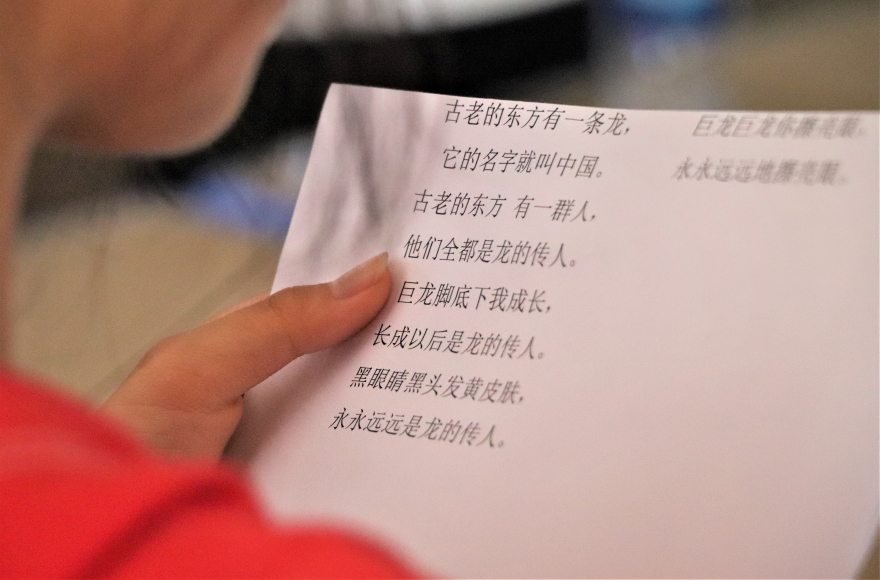 古老的东方有一条龙，
它的名字就叫中国。
古老的东方 有一群人，
他们全都是龙的传人。
巨龙脚底下我成长，
长成以后是龙的传人。
黑眼睛黑头发黄皮肤，
永永远远是龙的传人。
巨龙巨龙你擦亮眼，
永永远远地擦亮眼。